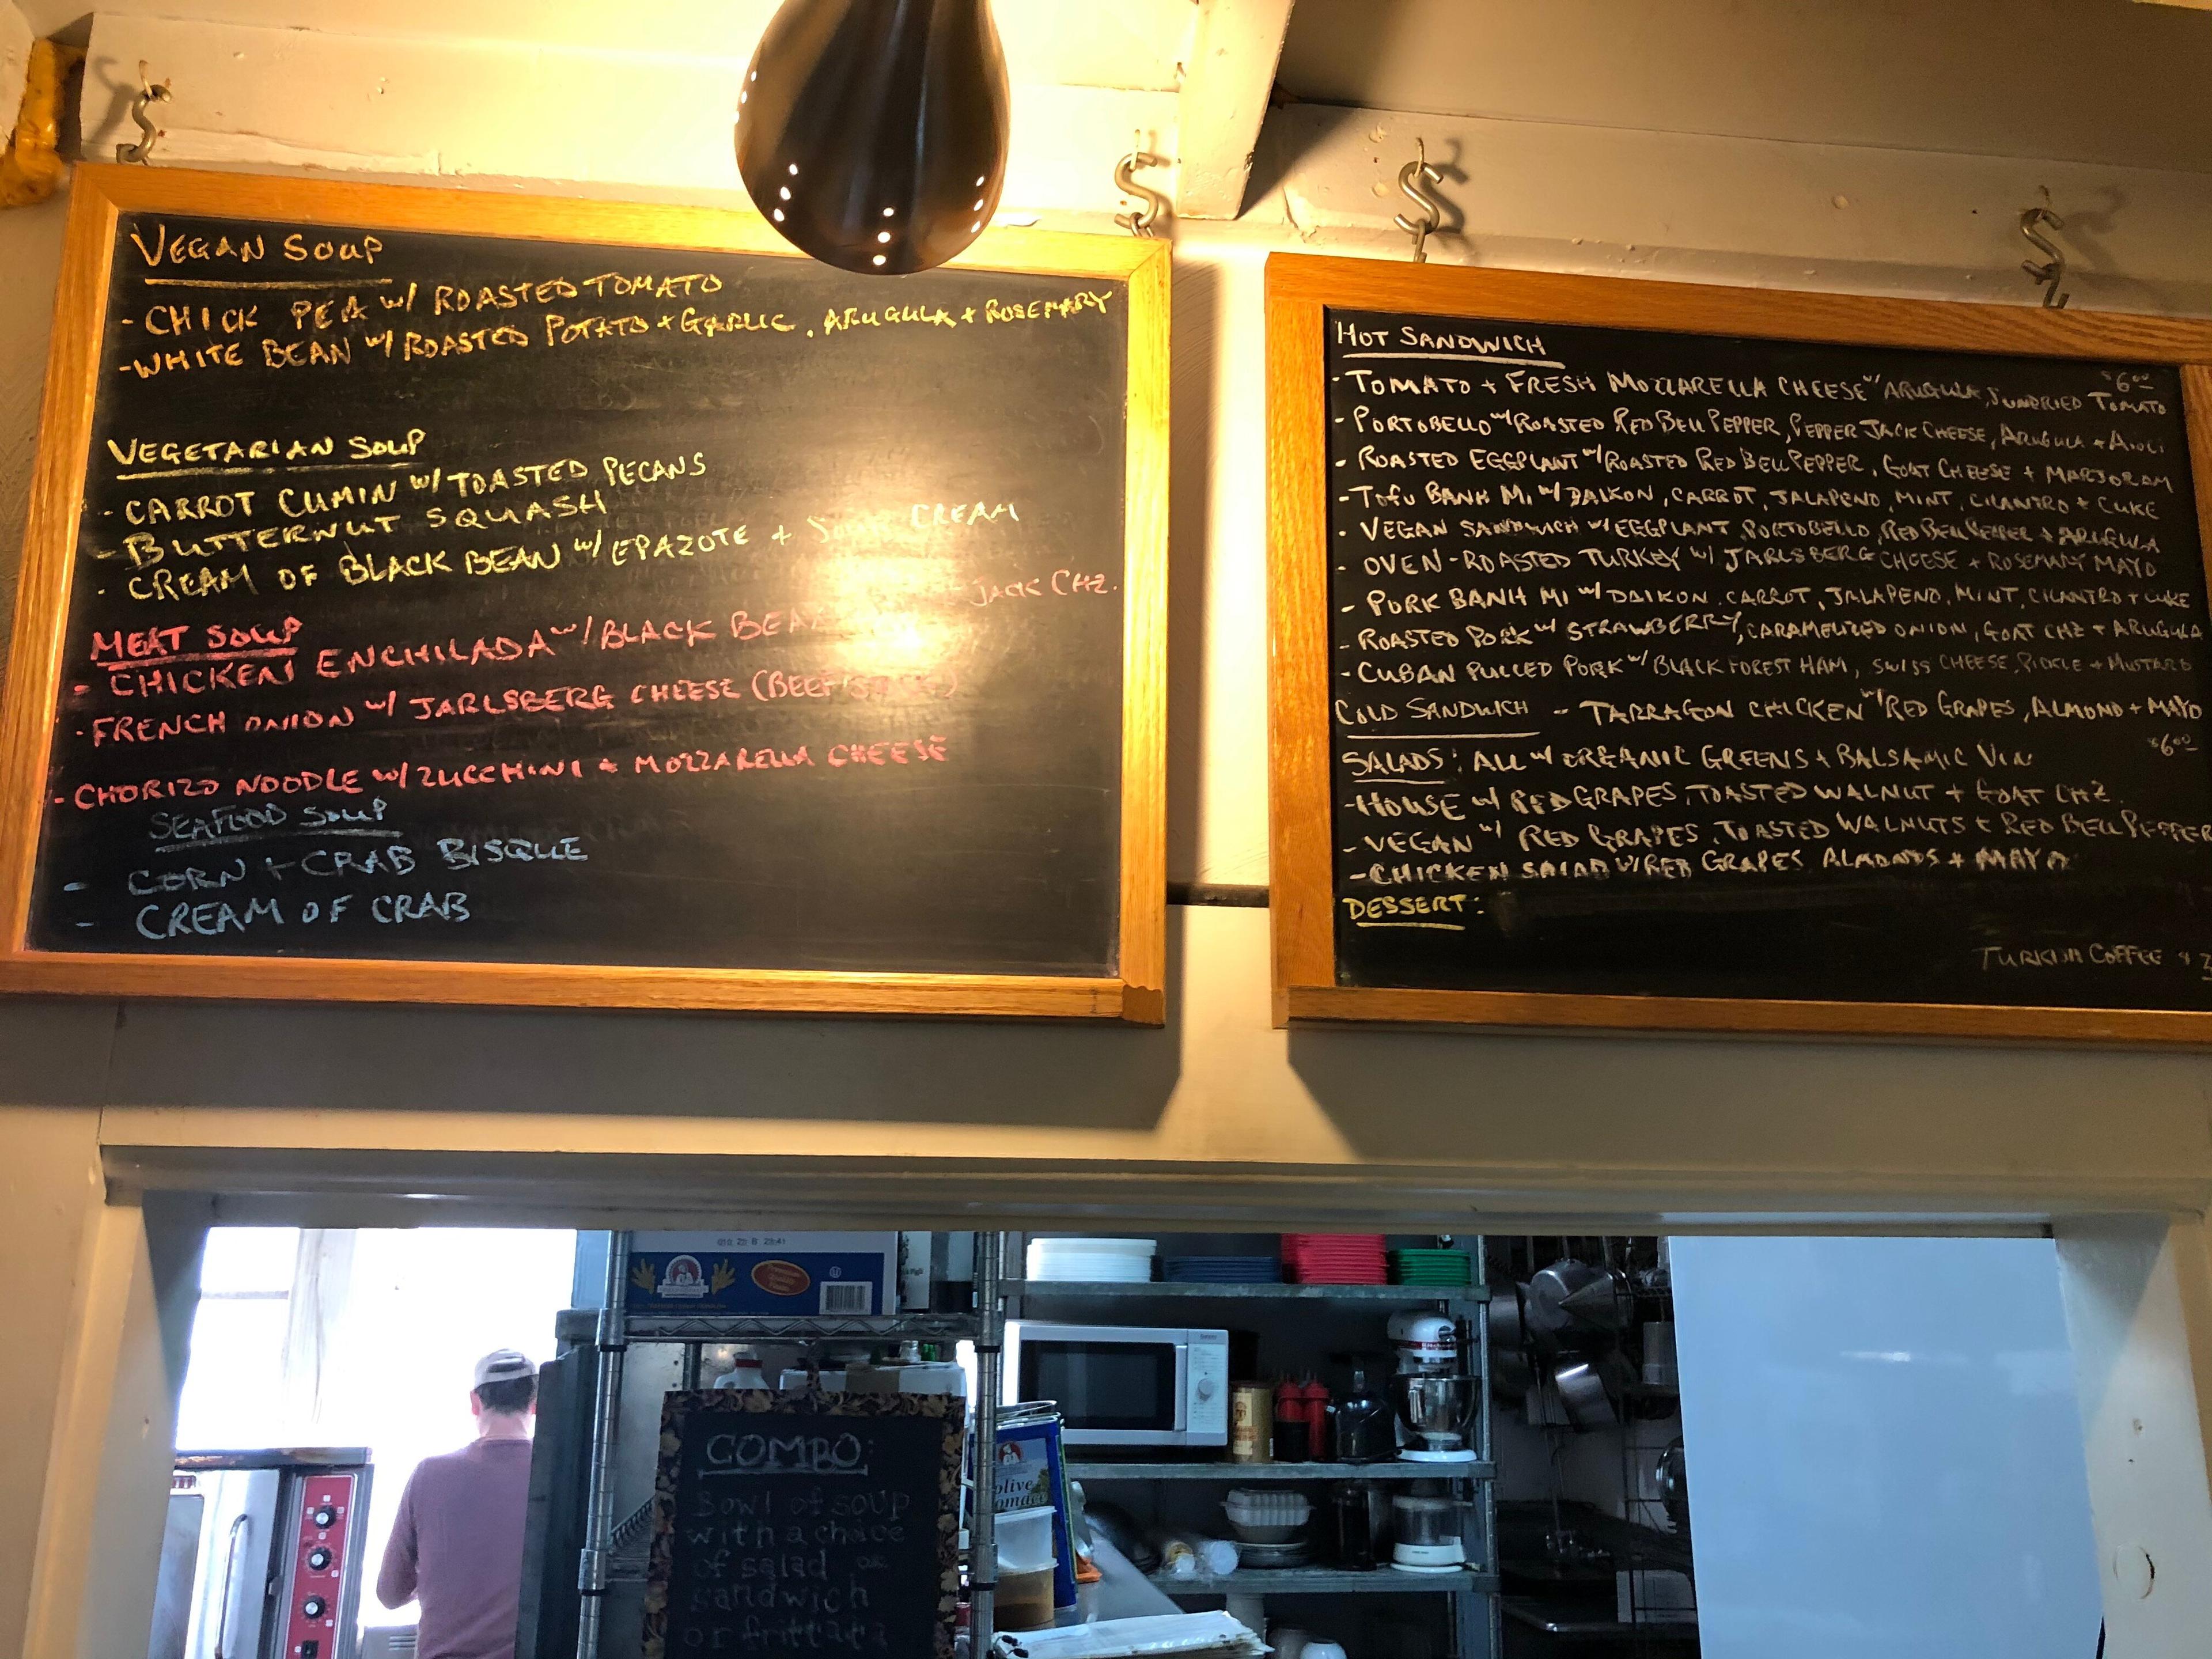 VEGAN SOUP
- CHICK PEA w/ ROASTED TOMATO
- WHITE BEAN w/ ROASTED POTATO + GARLIC, ARUGULA + ROSEMARY
VEGETARIAN SOUP
- CARROT CUMIN w/ TOASTED PECANS
- BUTTERNUT SQUASH
- CREAM OF BLACK BEAN w/ EPAZOTE + SOUR CREAM
MEAT SOUP
- CHICKEN ENCHILADA w/ BLACK BEAN JACK CHZ.
- FRENCH ONION w/ JARLSBERG CHEESE (BEEF
- CHORIZO NOODLE w/ ZUCCHINI + MOZZARELLA CHEESE
SEAFOOD SOUP
- CORN + CRAB BISQUE
- CREAM OF CRAB
HOT SANDWICH
$6.00
- TOMATO + FRESH MOZZARELLA CHEESE w/ ARUGULA, SUNDRIED TOMATO
- PORTOBELLO w/ ROASTED RED BELL PEPPER, PEPPER JACK CHEESE, ARUGULA + AIOLI
- ROASTED EGGPLANT w/ ROASTED RED BELL PEPPER, GOAT CHEESE + MARJORAM
- TOFU BANH MI w/ DAIKON, CARROT, JALAPENO, MINT, CILANTRO + CUKE
- VEGAN SANDWICH w/ EGGPLANT, PORTOBELLO, RED BELL PEPPER + ARUGULA
- OVEN-ROASTED TURKEY w/ JARLSBERG CHEESE + ROSEMARY MAYO
- PORK BANH MI w/ DAIKON, CARROT, JALAPENO, MINT, CILANTRO + CUKE
- ROASTED PORK w/ STRAWBERRY, CARAMELIZED ONION, GOAT CHZ + ARUGULA
- CUBAN PULLED PORK w/ BLACK FOREST HAM, SWISS CHEESE, PICKLE + MUSTARD
COLD SANDWICH - TARRAGON CHICKEN w/ RED GRAPES, ALMOND + MAYO
$6.00
SALADS: ALL w/ ORGANIC GREENS + BALSAMIC VIN
- HOUSE w/ RED GRAPES, TOASTED WALNUT + GOAT CHZ.
- VEGAN w/ RED GRAPES, TOASTED WALNUTS + RED BELL PEPPER
- CHICKEN SALAD w/ RED GRAPES, ALMONDS + MAYO
DESSERT:
TURKISH COFFEE $2
COMBO:
Bowl of soup
with a choice
of salad or
sandwich
or frittata
olive